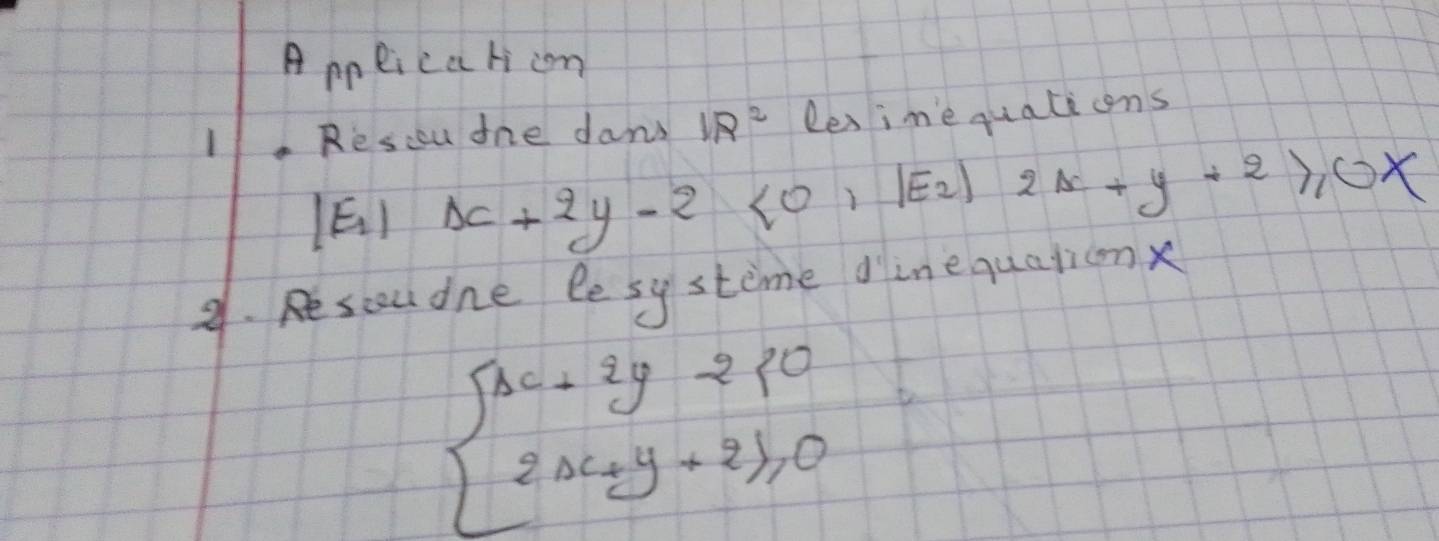 Application
1. Résoudre dans IR² les inéquations
|E₁| x + 2y - 2 < 0 ; |E2| 2x + y + 2 ⩾ 0 x
2. Résoudre le système d'inéquation x
{ x + 2y - 2 < 0
2x + y + 2 ⩾ 0